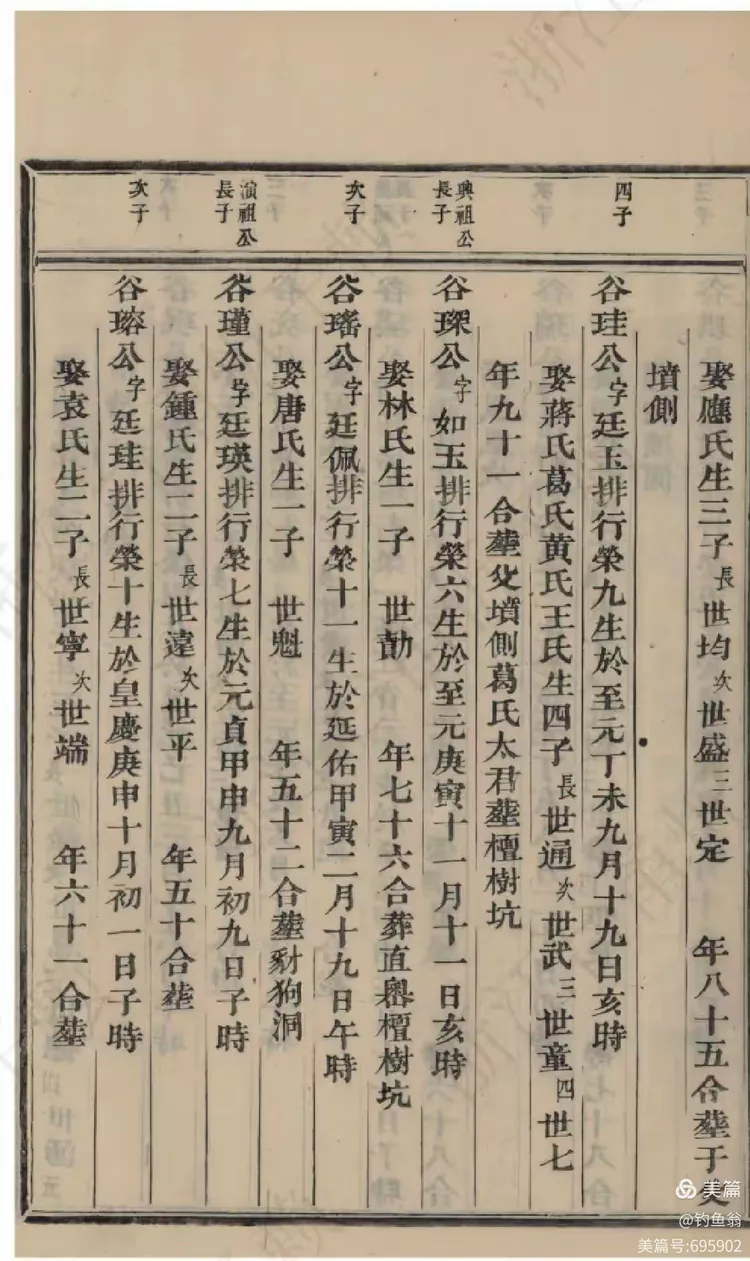 娶應氏生三子長世均次世盛三世定　年八十五合塟于父
墳側
四子
谷珪公字廷玉排行榮九生於至元丁未九月十九日亥時
娶蔣氏葛氏黃氏王氏生四子長世通次世武三世童四世七
年九十一合塟父墳側葛氏太君塟檀樹坑
興祖公長子
谷琛公字如玉排行榮六生於至元庚寅十一月十一日亥時
娶林氏生一子　世勣　年七十六合葬直嶴檀樹坑
次子
谷瑤公字廷佩排行榮十一生於延佑甲寅二月十九日午時
娶唐氏生一子　世魁　年五十二合塟豺狗洞
演祖公長子
谷瑾公字廷瑛排行榮七生於元貞甲申九月初九日子時
娶鍾氏生二子長世遠次世平　年五十合塟
次子
谷瑢公字廷珪排行榮十生於皇慶庚申十月初一日子時
娶袁氏生二子長世寧次世端　年六十一合塟
美篇
@钓鱼翁
美篇号:695902